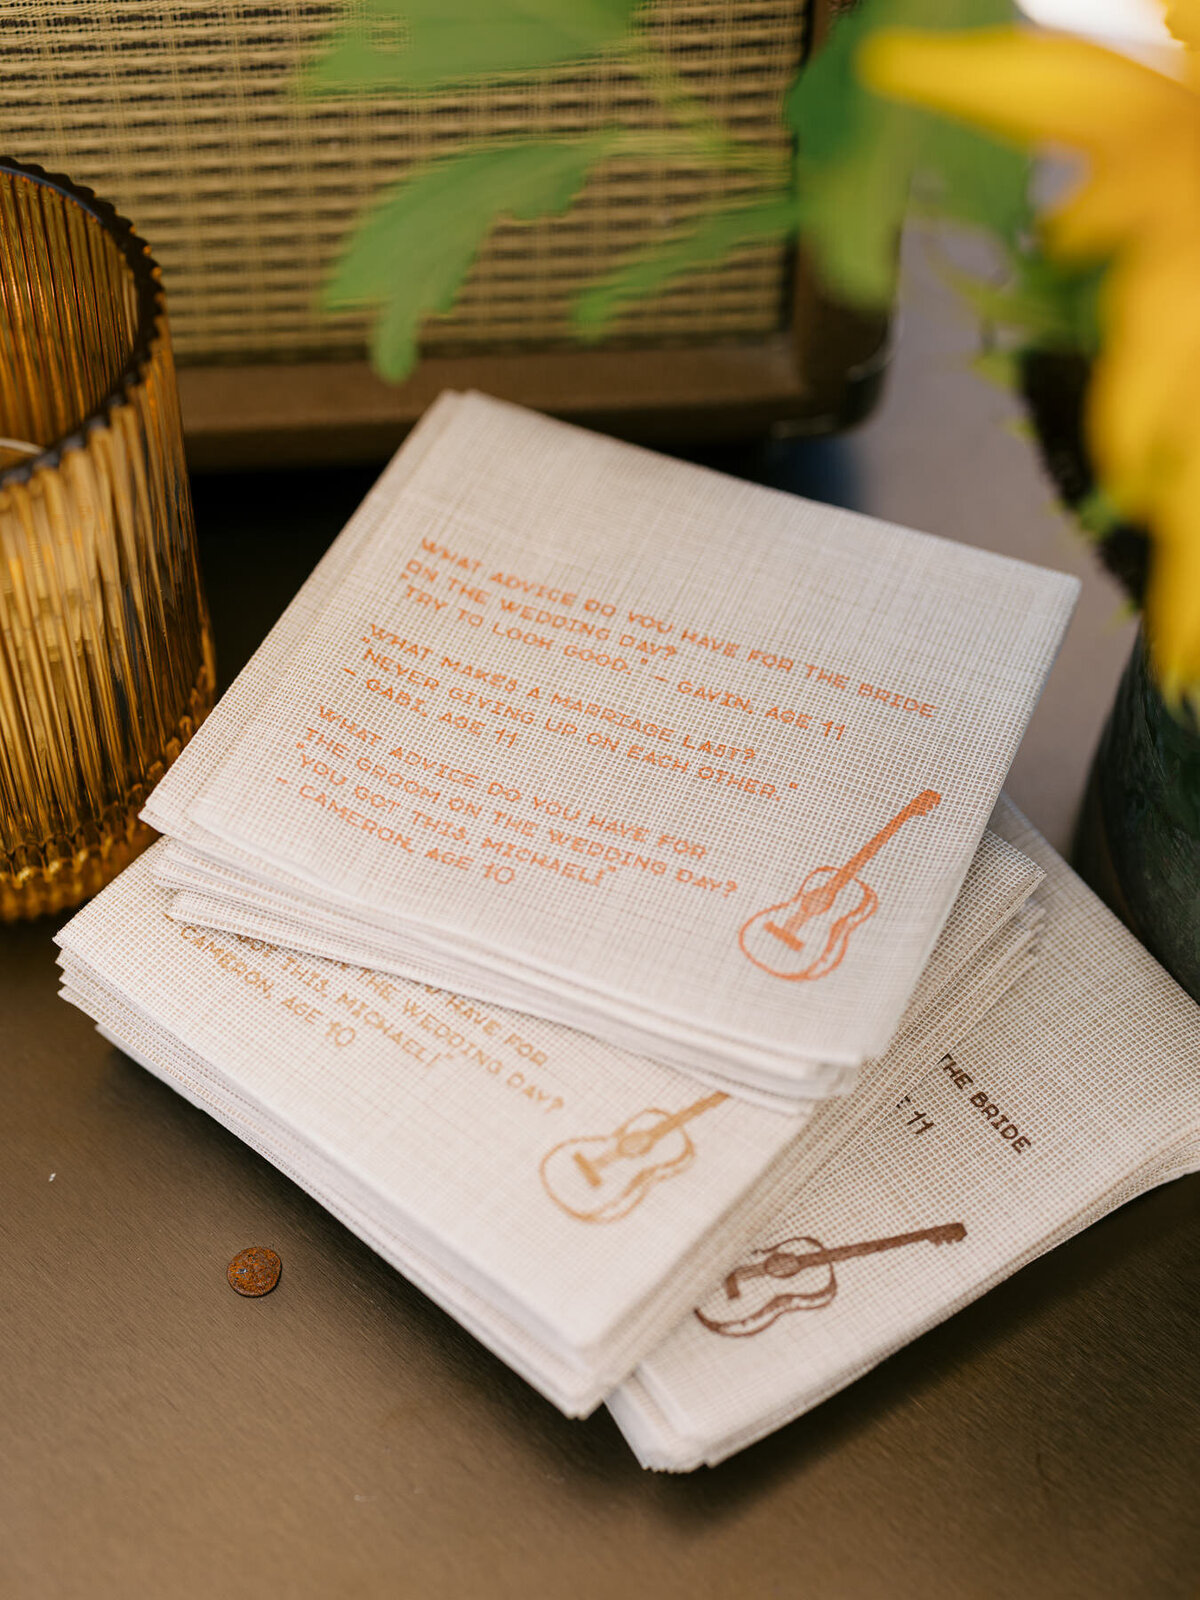 WHAT ADVICE DO YOU HAVE FOR THE BRIDE
ON THE WEDDING DAY?
"TRY TO LOOK GOOD." – GAVIN, AGE 11
"WHAT MAKES A MARRIAGE LAST?
"NEVER GIVING UP ON EACH OTHER."
– GABI, AGE 11
WHAT ADVICE DO YOU HAVE FOR
THE GROOM ON THE WEDDING DAY?
"YOU GOT THIS, MICHAEL!"
– CAMERON, AGE 10
HAVE FOR
THE WEDDING DAY?
THIS, MICHAEL!"
CAMERON, AGE 10
THE BRIDE
11